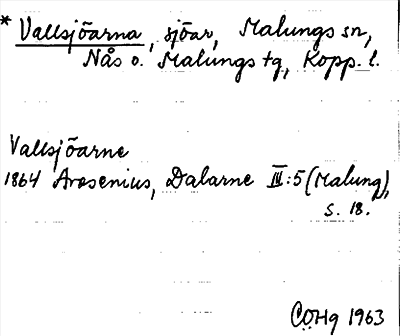 * Vallsjöarna, sjöar, Malungs sn,
Nås o. Malungs tg, Kopp. l.
Vallsjöarne
1864 Arosenius, Dalarne III:5 (Malung),
s. 18.
COHg 1963